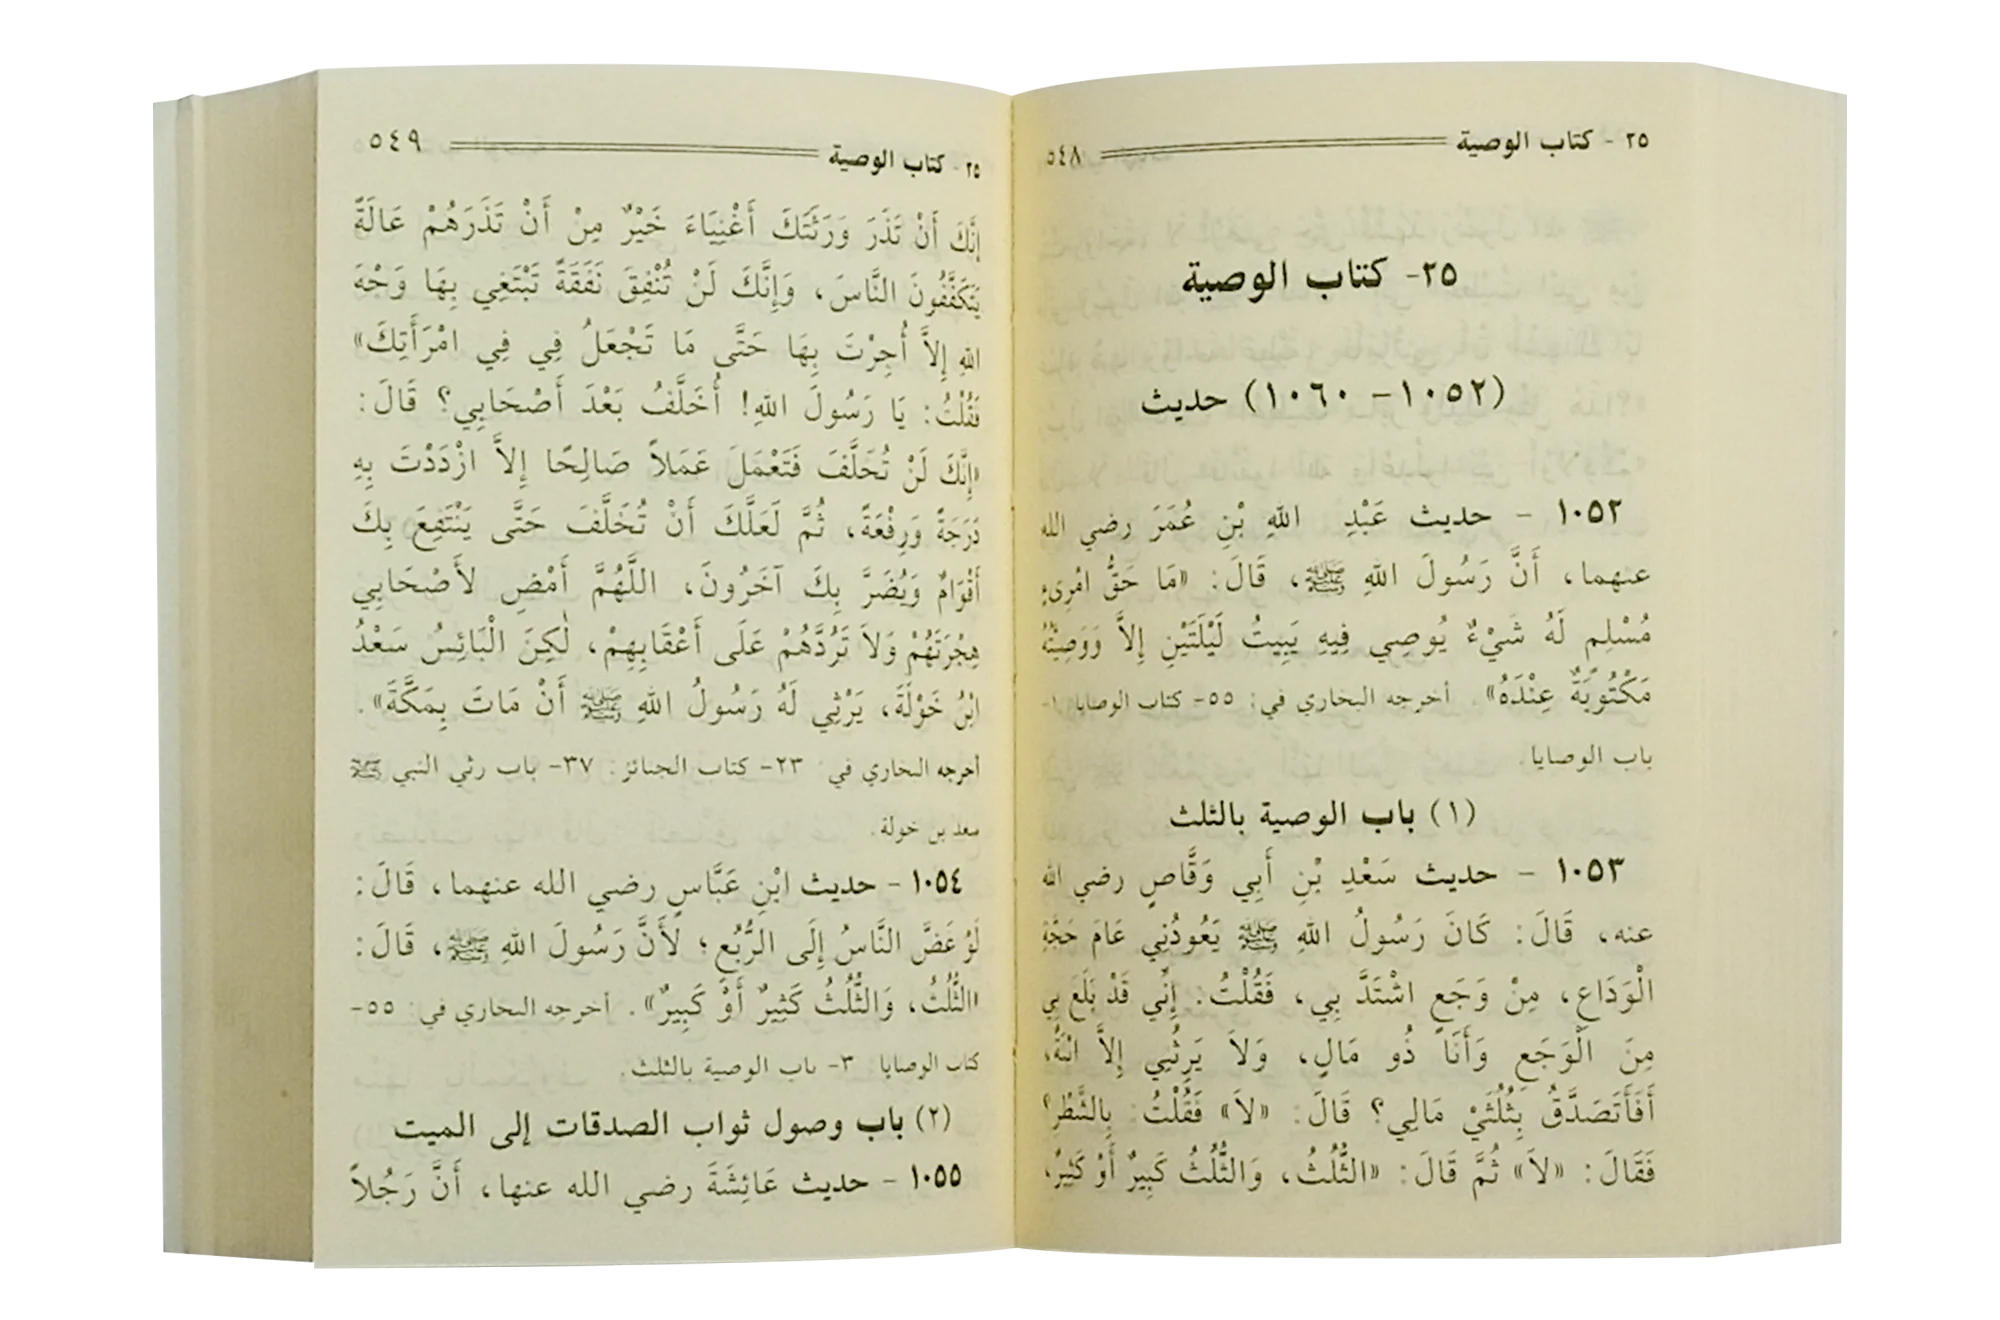 ٢٥ - كتاب الوصية ٥٤٨
٢٥- كتاب الوصية
(١٠٥٢- ١٠٦٠) حديث
١٠٥٢ - حديث عَبْدِ اللهِ بْنِ عُمَرَ رضي الله
عنهما، أَنَّ رَسُولَ اللهِ ﷺ، قَالَ: «مَا حَقُّ امْرِىءٍ
مُسْلِمٍ لَهُ شَيْءٌ يُوصِي فِيهِ يَبِيتُ لَيْلَتَيْنِ إِلاَّ وَوَصِيَّتُهُ
مَكْتُوبَةٌ عِنْدَهُ». أخرجه البخاري في: ٥٥- كتاب الوصايا ١-
باب الوصايا.
(١) باب الوصية بالثلث
١٠٥٣ - حديث سَعْدِ بْنِ أَبِي وَقَّاصٍ رضي الله
عنه، قَالَ: كَانَ رَسُولُ اللهِ ﷺ يَعُودُنِي عَامَ حَجَّةِ
الْوَدَاعِ، مِنْ وَجَعٍ اشْتَدَّ بِي، فَقُلْتُ: إِنِّي قَدْ بَلَغَ بِي
مِنَ الْوَجَعِ وَأَنَا ذُو مَالٍ، وَلاَ يَرِثُنِي إِلاَّ ابْنَةٌ،
أَفَأَتَصَدَّقُ بِثُلُثَيْ مَالِي؟ قَالَ: «لاَ» فَقُلْتُ: بِالشَّطْرِ؟
فَقَالَ: «لاَ» ثُمَّ قَالَ: «الثُّلُثُ، وَالثُّلُثُ كَبِيرٌ أَوْ كَثِيرٌ،
٢٥ - كتاب الوصية ٥٤٩
إِنَّكَ أَنْ تَذَرَ وَرَثَتَكَ أَغْنِيَاءَ خَيْرٌ مِنْ أَنْ تَذَرَهُمْ عَالَةً
يَتَكَفَّفُونَ النَّاسَ، وَإِنَّكَ لَنْ تُنْفِقَ نَفَقَةً تَبْتَغِي بِهَا وَجْهَ
اللهِ إِلاَّ أُجِرْتَ بِهَا حَتَّى مَا تَجْعَلُ فِي فِي امْرَأَتِكَ»
فَقُلْتُ: يَا رَسُولَ اللهِ! أُخَلَّفُ بَعْدَ أَصْحَابِي؟ قَالَ:
«إِنَّكَ لَنْ تُخَلَّفَ فَتَعْمَلَ عَمَلاً صَالِحًا إِلاَّ ازْدَدْتَ بِهِ
دَرَجَةً وَرِفْعَةً، ثُمَّ لَعَلَّكَ أَنْ تُخَلَّفَ حَتَّى يَنْتَفِعَ بِكَ
أَقْوَامٌ وَيُضَرَّ بِكَ آخَرُونَ، اللَّهُمَّ أَمْضِ لأَصْحَابِي
هِجْرَتَهُمْ وَلاَ تَرُدَّهُمْ عَلَى أَعْقَابِهِمْ، لٰكِنَ الْبَائِسُ سَعْدُ
ابْنُ خَوْلَةَ، يَرْثِي لَهُ رَسُولُ اللهِ ﷺ أَنْ مَاتَ بِمَكَّةَ».
أخرجه البخاري في: ٢٣- كتاب الجنائز: ٣٧- باب رثي النبي ﷺ
سعد بن خولة.
١٠٥٤ - حديث ابْنِ عَبَّاسٍ رضي الله عنهما، قَالَ:
لَوْ غَضَّ النَّاسُ إِلَى الرُّبُعِ؛ لأَنَّ رَسُولَ اللهِ ﷺ، قَالَ:
«الثُّلُثُ، وَالثُّلُثُ كَثِيرٌ أَوْ كَبِيرٌ». أخرجه البخاري في: ٥٥-
كتاب الوصايا ٣- باب الوصية بالثلث.
(٢) باب وصول ثواب الصدقات إلى الميت
١٠٥٥ - حديث عَائِشَةَ رضي الله عنها، أَنَّ رَجُلاً